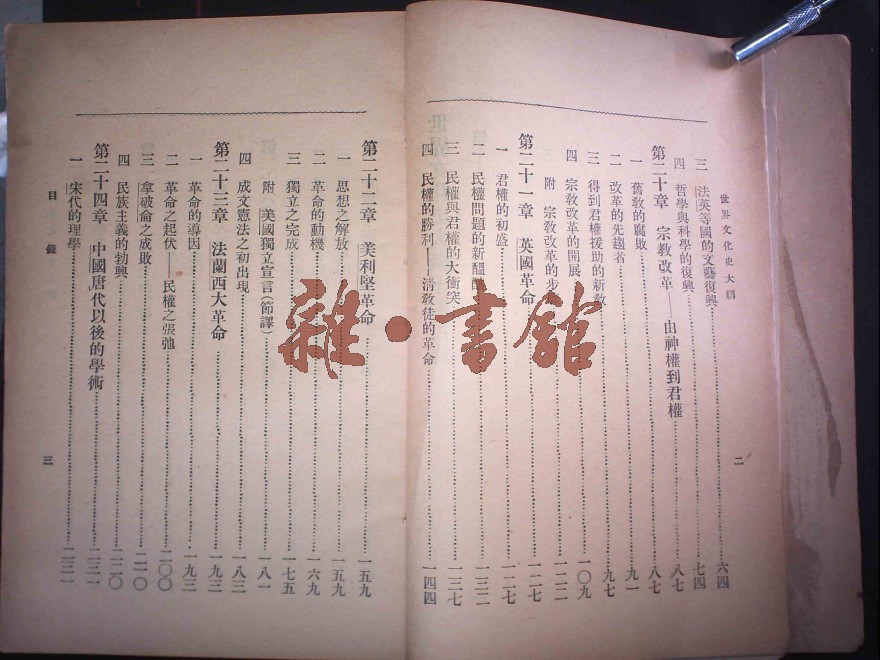 世界文化史大綱
三 法英等國的文藝復興……六四
四 哲學與科學的復興……七四
第二十章 宗教改革——由神權到君權……八七
一 舊教的腐敗……八七
二 改革的先趨者……九一
三 得到君權援助的新教……九七
四 宗教改革的開展……一〇九
附 宗教改革的步……一二二
第二十一章 英國革命……一二七
一 君權的初盛……一二七
二 民權問題的新醞釀……一三二
三 民權與君權的大衝突……一三七
四 民權的勝利——清教徒的革命……一四四
二
第二十二章 美利堅革命……一五九
一 思想之解放……一五九
二 革命的動機……一六九
三 獨立之完成……一七五
附 美國獨立宣言(節譯)……一八一
四 成文憲法之初出現……一八三
第二十三章 法蘭西大革命……一九三
一 革命的導因……一九三
二 革命之起伏——民權之張弛……二〇〇
三 拿破命之成敗……二一〇
四 民族主義的勃興……二二〇
第二十四章 中國唐代以後的學術……二三一
一 宋代的理學……二三一
目錄
三
雜·書館